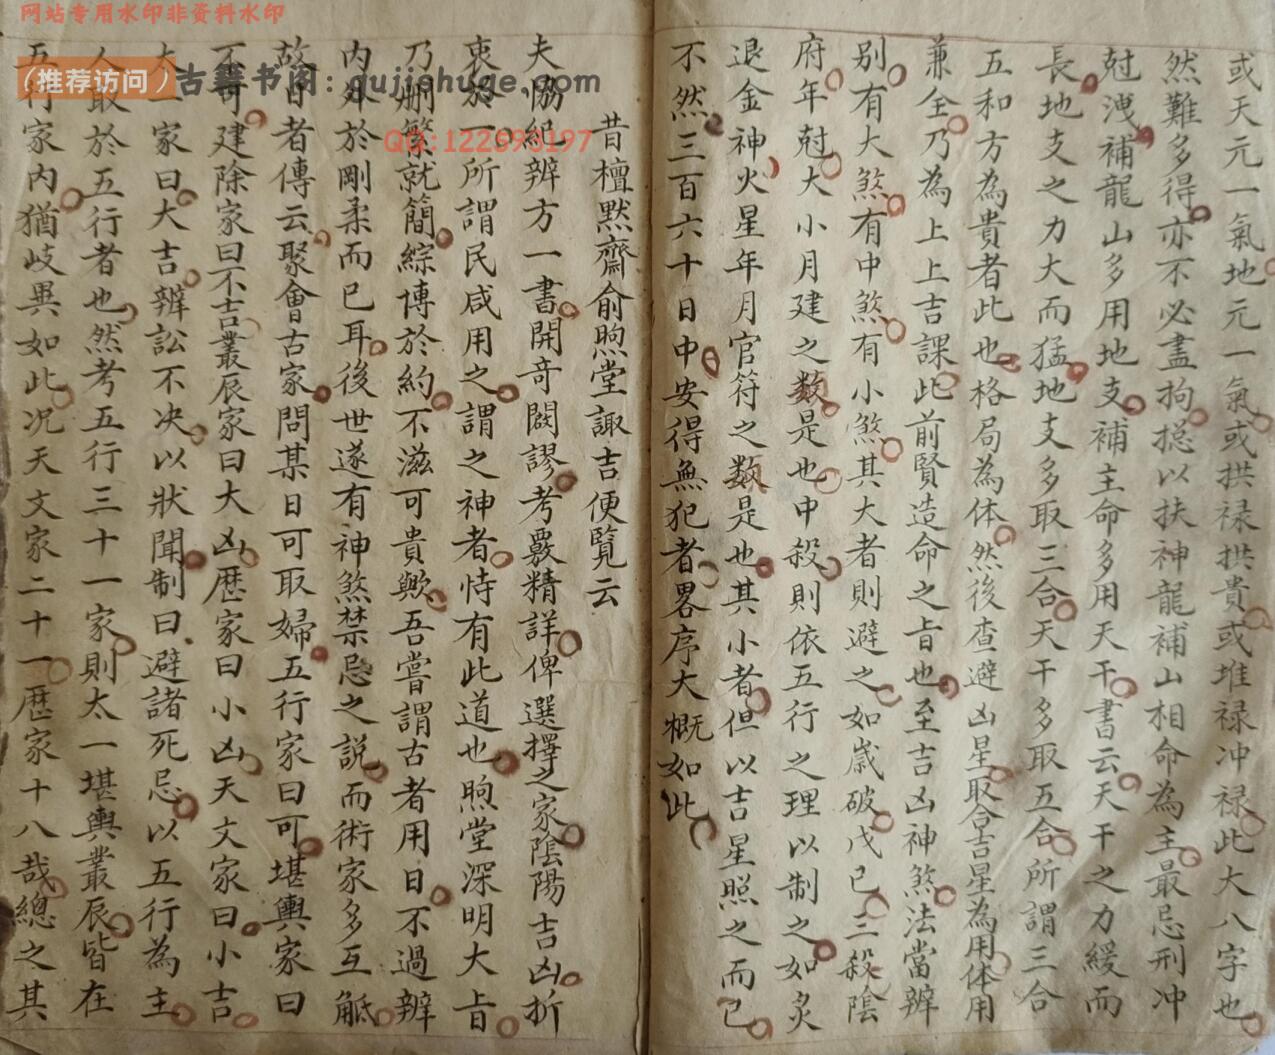 网站专用水印非资料水印
（推荐访问） 古籍书阁：gujishuge.com
QQ:122593197
或天元一氣地元一氣或拱禄拱貴或堆禄冲禄此大八字也
然難多得亦不必盡拘揔以扶神龍補山相命為主最忌刑冲
尅洩補龍山多用地支補主命多用天干書云天干之力緩而
長地支之力大而猛地支多取三合天干多取五合所謂三合
五和方為貴者此也格局為体然後查避凶星取合吉星為用体用
兼全乃為上上吉課此前賢造命之旨也至吉凶神煞法當辨
别有大煞有中煞有小煞其大者則避之如歲破戊已三殺陰
府年尅大小月建之数是也中殺則依五行之理以制之如炙
退金神火星年月官符之数是也其小者但以吉星照之而已
不然三百六十日中安得無犯者畧序大概如此
昔檀默齋俞煦堂諏吉便覽云
夫協紀辨方一書開奇闢謬考覈精詳俾選擇之家陰陽吉凶折
衷於一所謂民咸用之謂之神者恃有此道也煦堂深明大旨
乃刪繁就簡綜博於約不滋可貴歟吾嘗謂古者用日不過辨
内外於剛柔而已耳後世遂有神煞禁忌之說而術家多互觝
故日者傳云聚會古家問某日可取婦五行家曰可堪輿家曰
不可建除家曰不吉叢辰家曰大凶歷家曰小凶天文家曰小吉
太一家曰大吉辨訟不决以狀聞制曰避諸死忌以五行為主
人取於五行者也然考五行三十一家則太一堪輿叢辰皆在
五行家内猶岐異如此况天文家二十一歷家十八哉總之其